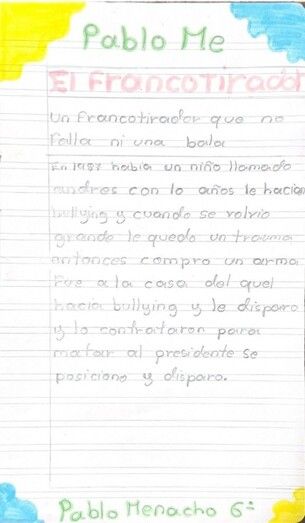 Pablo Me
El Francotirador
Un francotirador que no
falla ni una bala
En 1987 habia un niño llamado
andres con 10 años le hacian
bullying y cuando se volvio
grande le quedo un trauma
entonces compro un arma
Fue a la casa del quel
hacia bullying y le disparo
y lo contrataron para
matar al presidente se
posiciono y disparo.
Pablo Menacho 6º